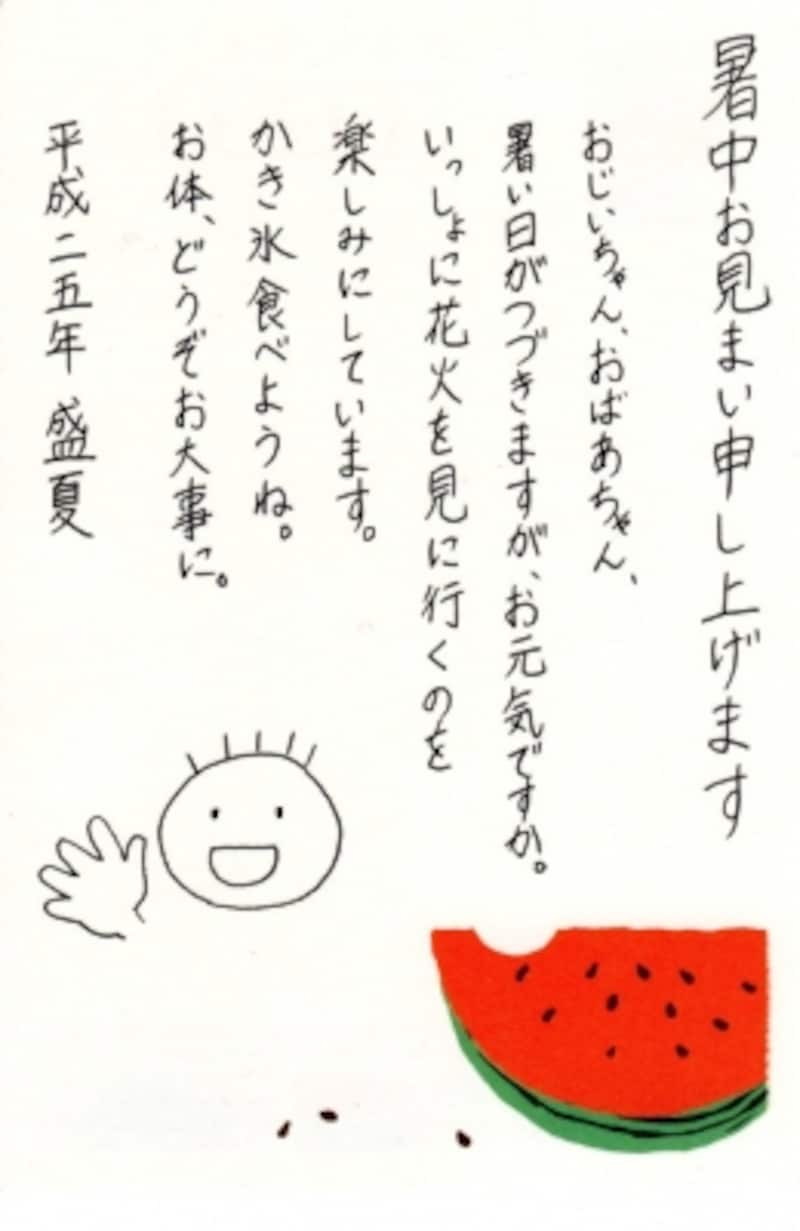 暑中お見まい申し上げます
おじいちゃん、おばあちゃん、
暑い日がつづきますが、お元気ですか。
いっしょに花火を見に行くのを
楽しみにしています。
かき氷食べようね。
お体、どうぞお大事に。
平成二五年 盛夏